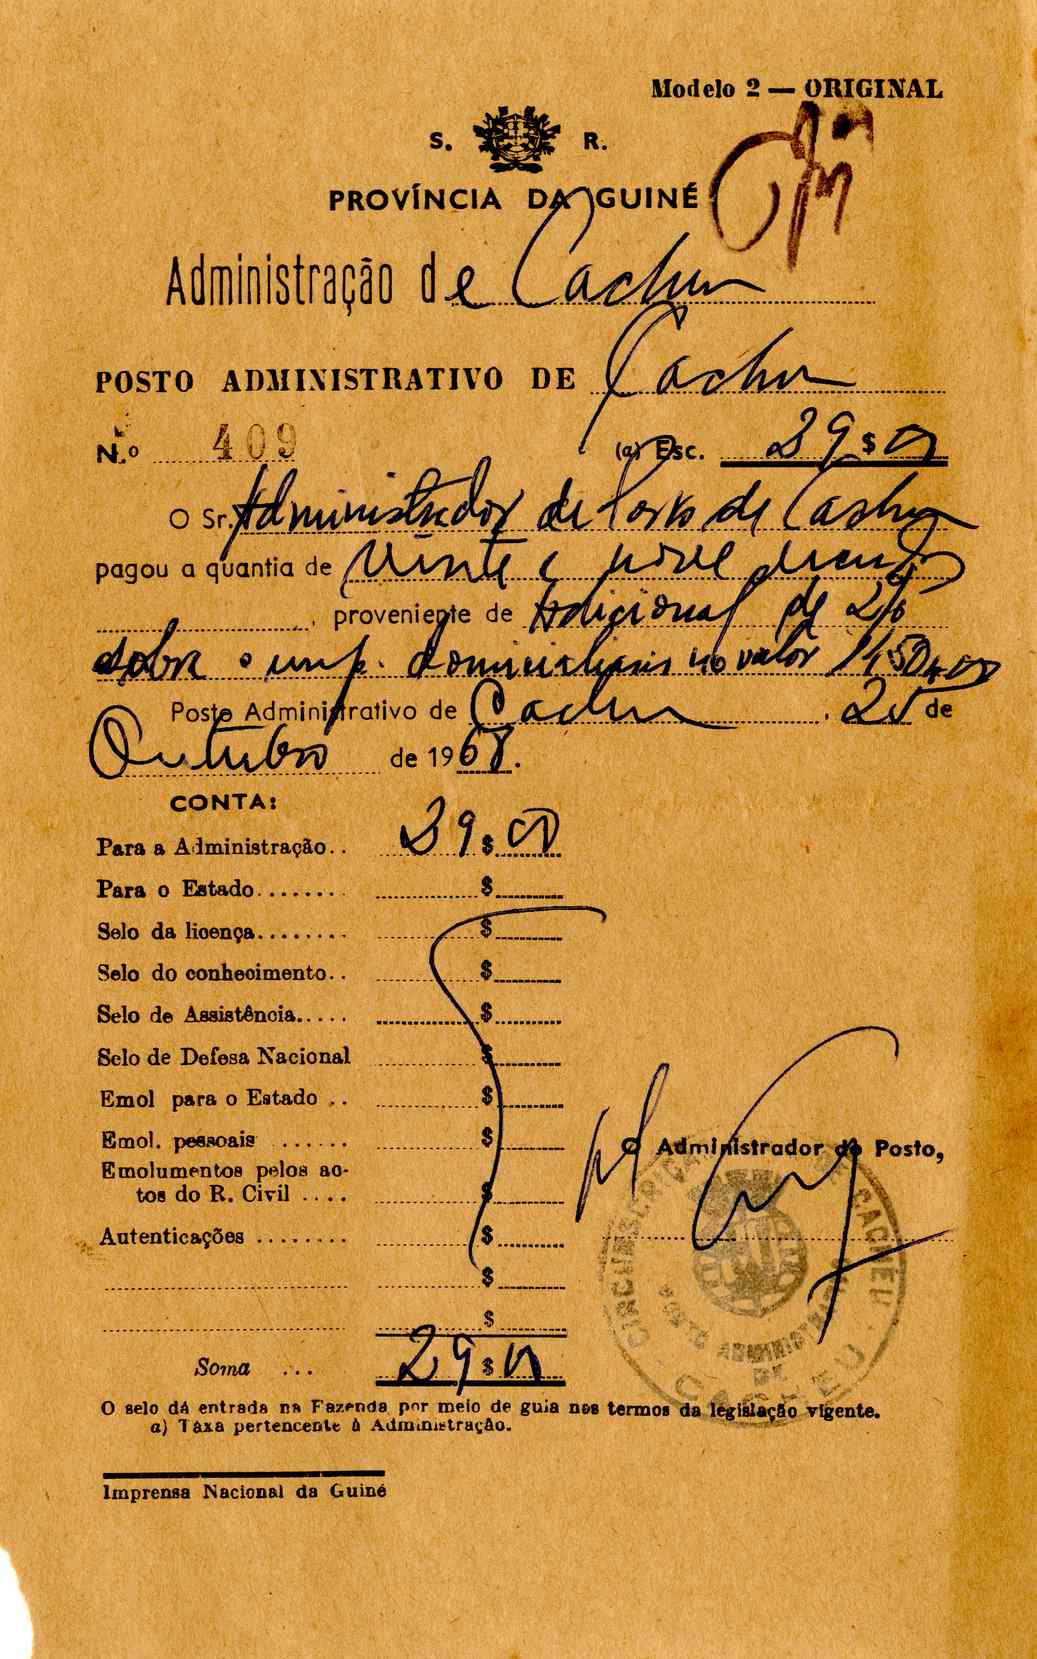 Modelo 2 — ORIGINAL
S. R.
PROVÍNCIA DA GUINÉ
Administração de Cacheu
POSTO ADMINISTRATIVO DE Cacheu
N.º 409 (a) Esc. 29$00
O Sr. Administrador do Posto de Cacheu
pagou a quantia de Vinte e nove escudos
, proveniente de Adicional de 2%
sobre o imp. domiciliário no valor
Posto Administrativo de Cacheu, 25 de
Outubro de 1968.
CONTA:
Para a Administração.. 29$00
Para o Estado........ $
Selo da licença........ $
Selo do conhecimento.. $
Selo de Assistência..... $
Selo de Defesa Nacional $
Emol para o Estado .. $
Emol. pessoais ...... $
Emolumentos pelos ac-
tos do R. Civil .... $
Autenticações ........ $
$
$
O Administrador do Posto,
CIRCUNSCRIÇÃO DE CACHEU
POSTO ADMINISTRATIVO
DE
CACHEU
Soma ... 29$00
O selo dá entrada na Fazenda por meio de guia nos termos da legislação vigente.
a) Taxa pertencente à Administração.
Imprensa Nacional da Guiné